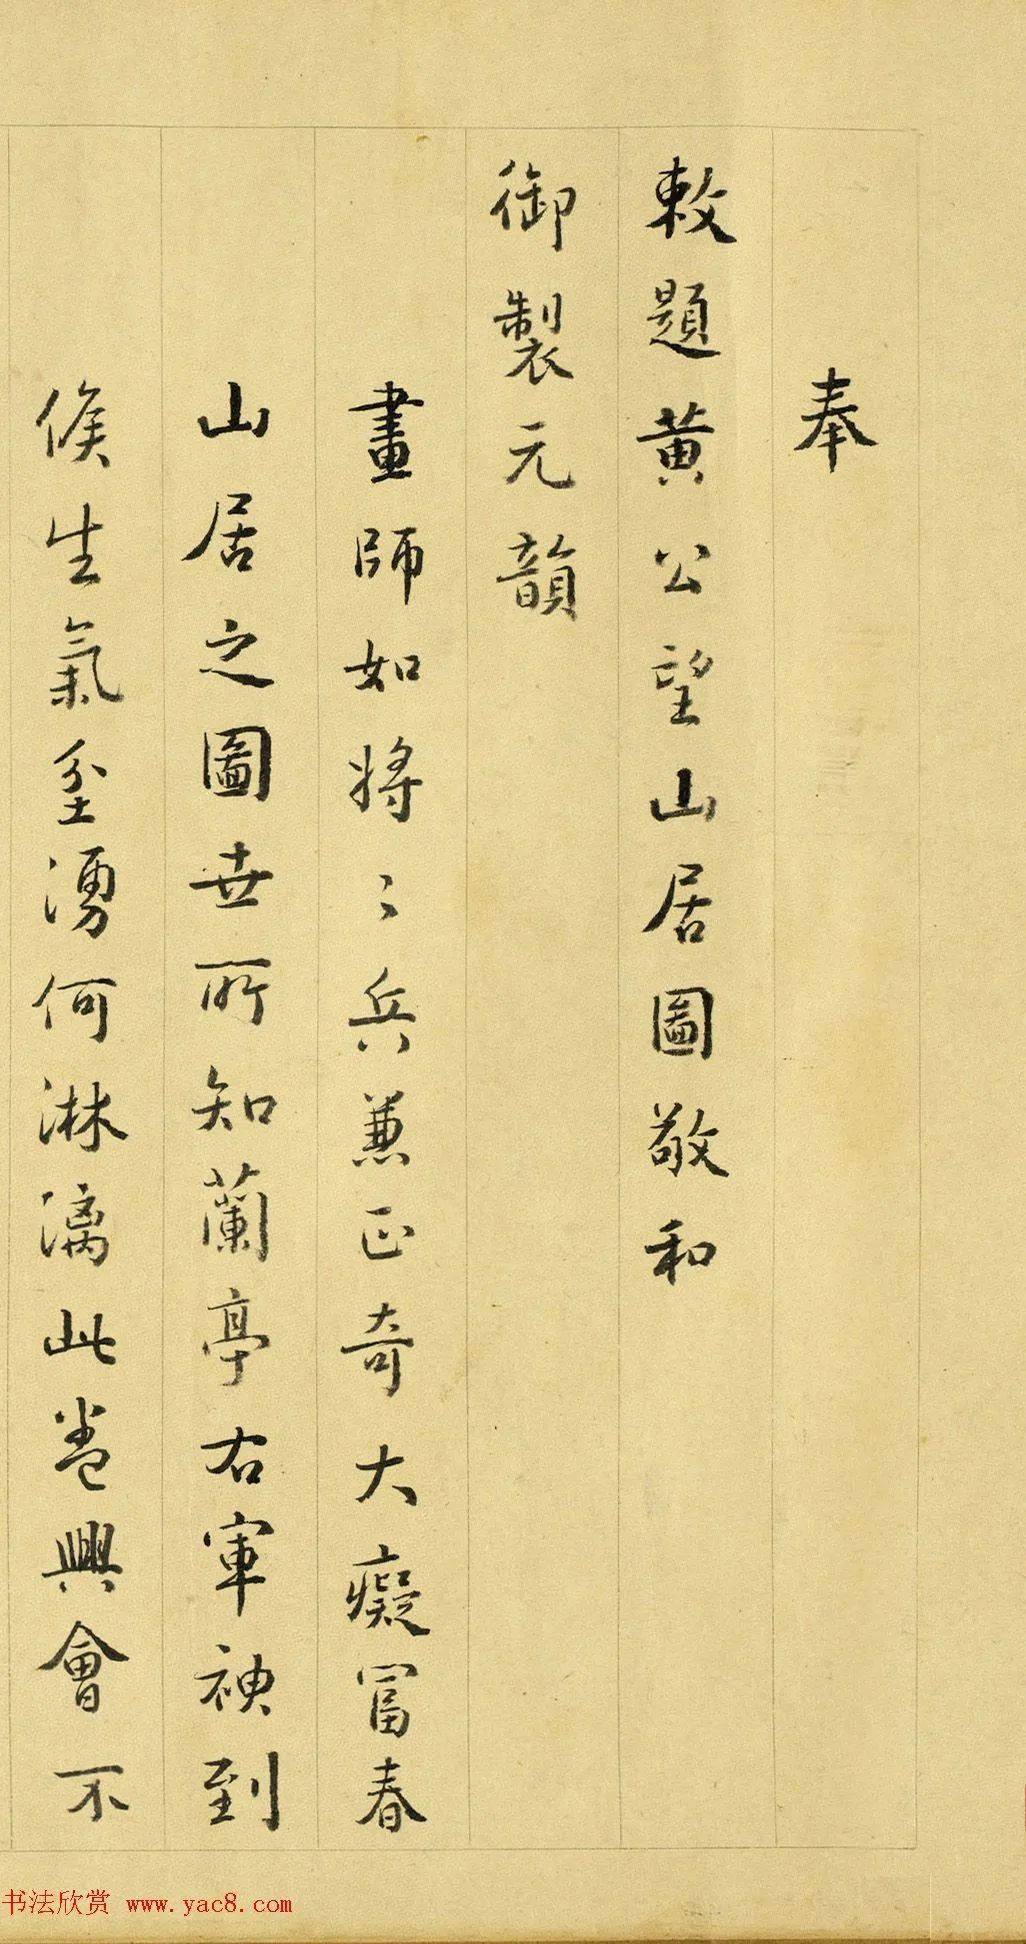 奉
敕題黄公望山居圖敬和
御製元韻
畫師如將〻兵兼正奇大癡富春
山居之圖世所知蘭亭右軍神到
候生氣坌湧何淋漓此卷興會不
书法欣赏 www.yac8.com